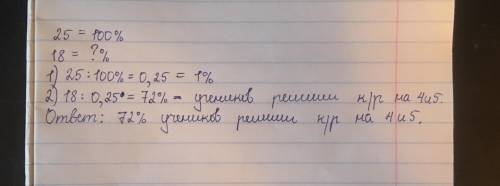 25 = 100%
18 = ?%
1) 25 : 100% = 0,25 = 1%
2) 18 : 0,25 = 72% - учеников решили к/р на 4и5.
Ответ: 72% учеников решили к/р на 4и5.